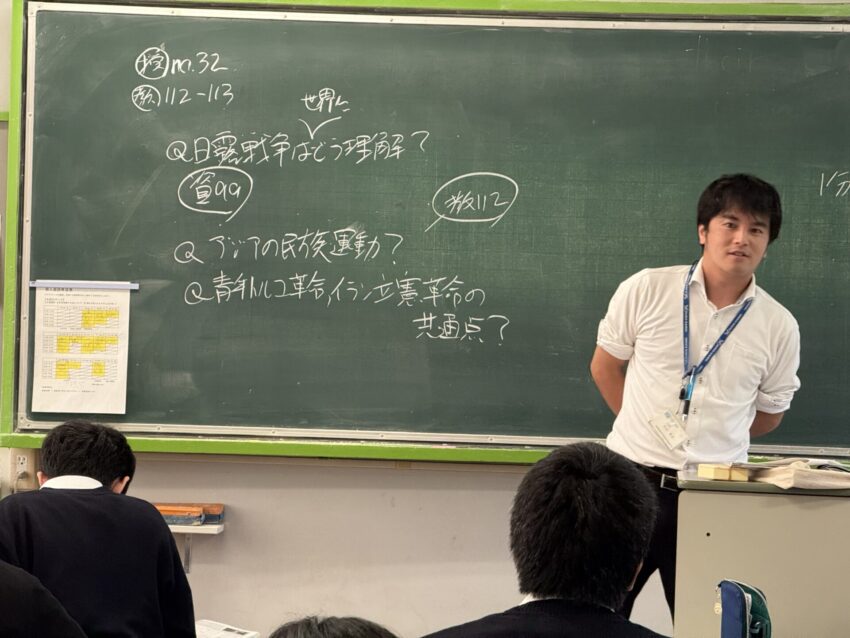 m.32
教 112-113
世界に
Q日露戦争はどう理解?
資99
教112
Q アジアの民族運動?
Q青年トルコ革命,イラン立憲革命の
共通点?
1分